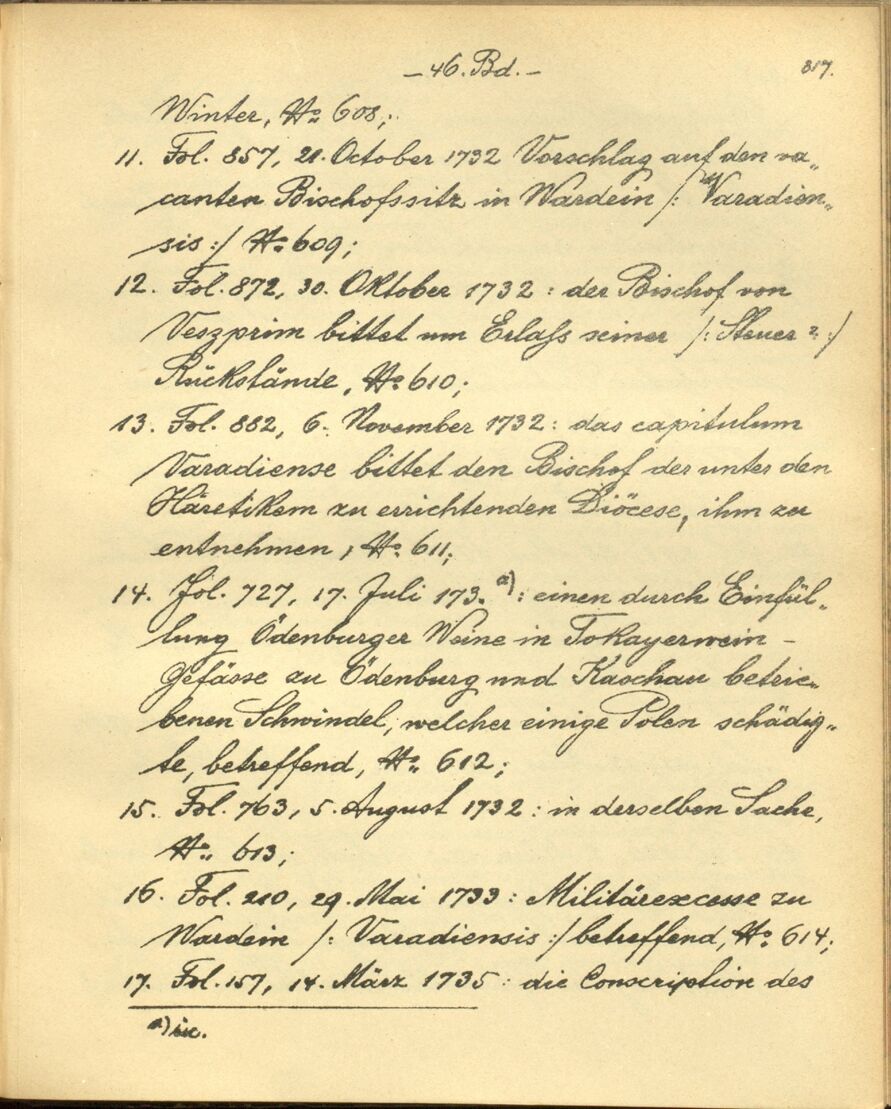 – 46. Bd. –
317.
Winter, No 608;
11. Fol. 857, 21. October 1732 Vorschlag auf den va„
canten Bischofssitz in Wardein /: Varadien„
sis :/ No 609;
12. Fol. 872, 30. Oktober 1732 : der Bischof von
Veszprim bittet um Erlaß seiner /: Steuer ? :/
Rückstände, No 610;
13. Fol. 882, 6. November 1732 : das capitulum
Varadiense bittet den Bischof der unter den
Häretikern zu errichtenden Diöcese, ihm zu
entnehmen, No 611;
14. Fol. 727, 17. Juli 173. a) : einen durch Einfül„
lung Ödenburger Weine in Tokayerwein –
Gefässe zu Ödenburg und Kaschau betrie„
benen Schwindel, welcher einige Polen schädig„
te, betreffend, No 612;
15. Fol. 763, 5. August 1732 : in derselben Sache,
No 613;
16. Fol. 210, 29. Mai 1733 : Militärexcesse zu
Wardein /: Varadiensis :/ betreffend, No 614;
17. Fol. 157, 14. März 1735 : die Conscription des
a) sic.